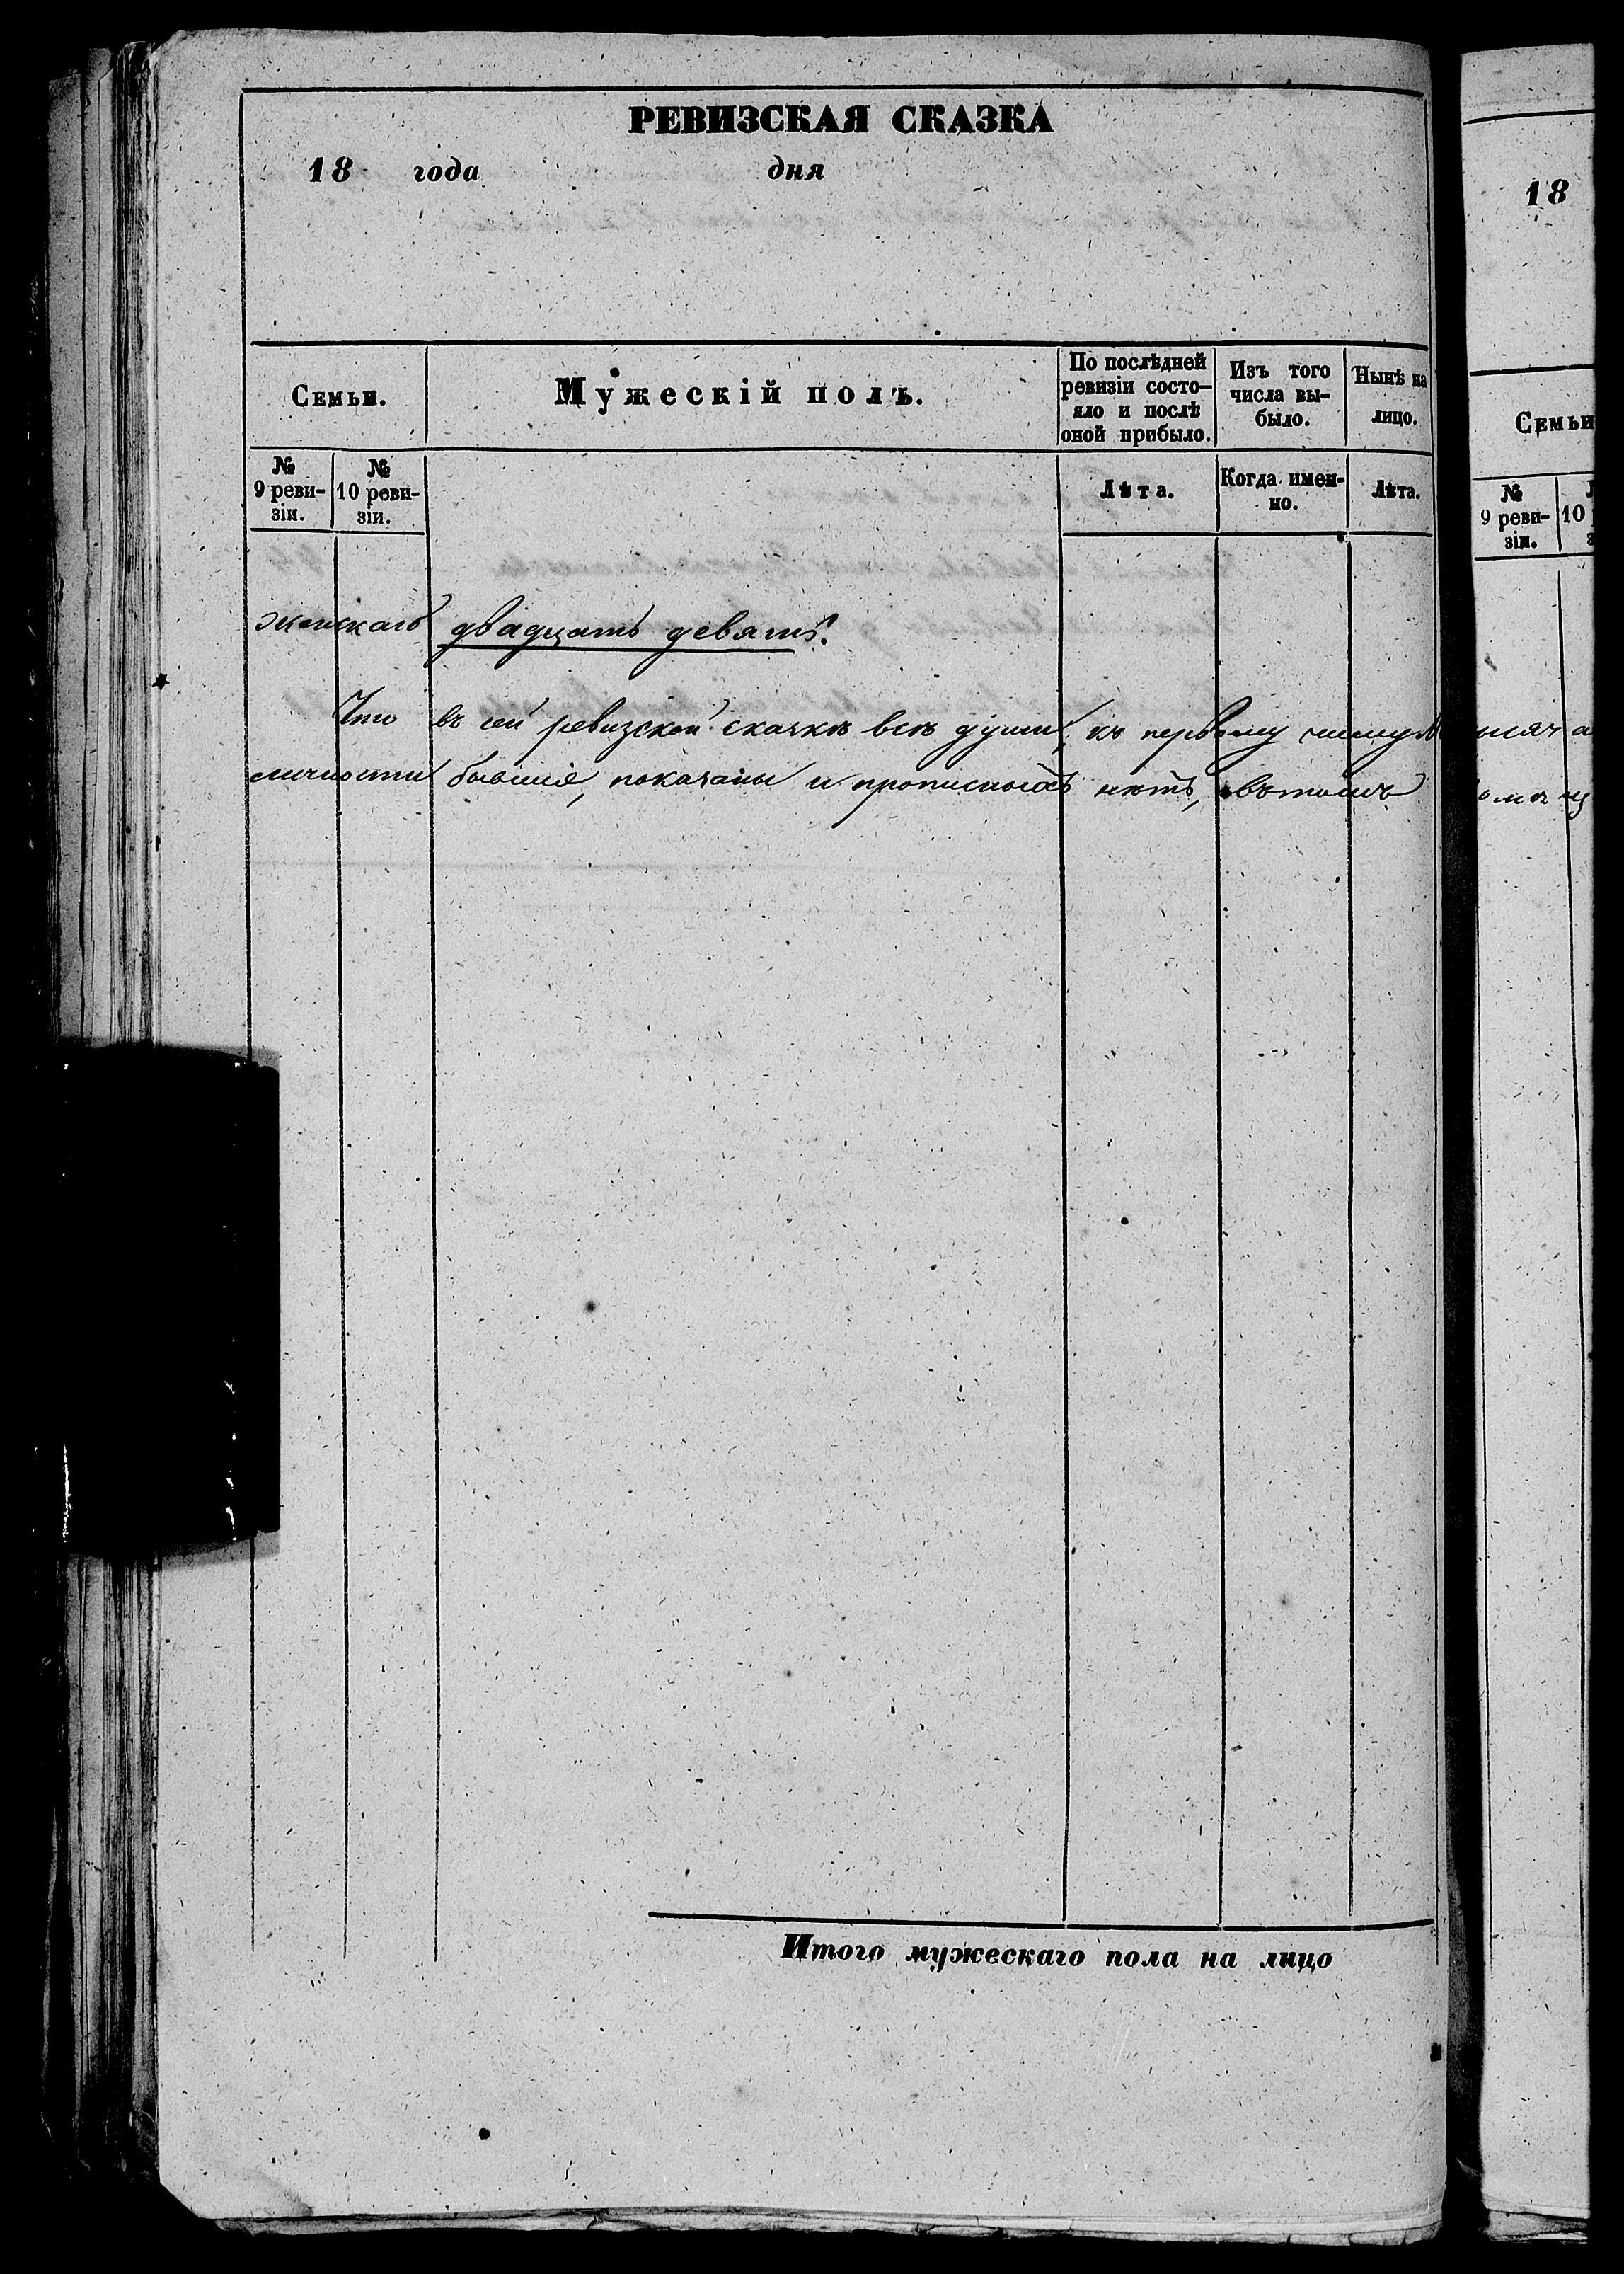 РЕВИЗСКАЯ СКАЗКА
18 года дня
Семьи.
Мужескій полъ.
По послѣдней
ревизіи состо-
яло и послѣ
оной прибыло.
Изъ того
числа вы-
было.
Нынѣ на
лицо.
№
9 реви-
зіи.
№
10 реви-
зіи.
Лѣта.
Когда имен-
но.
Лѣта.
женскаго двадцать девять.
Что въ сей ревизской сказкѣ всѣ души, къ первому числу
бывшіе, показаны и прописныхъ нѣтъ, въ томъ
Итого мужескаго пола на лицо
18
Семьи
№
9 реви-
зіи.
10